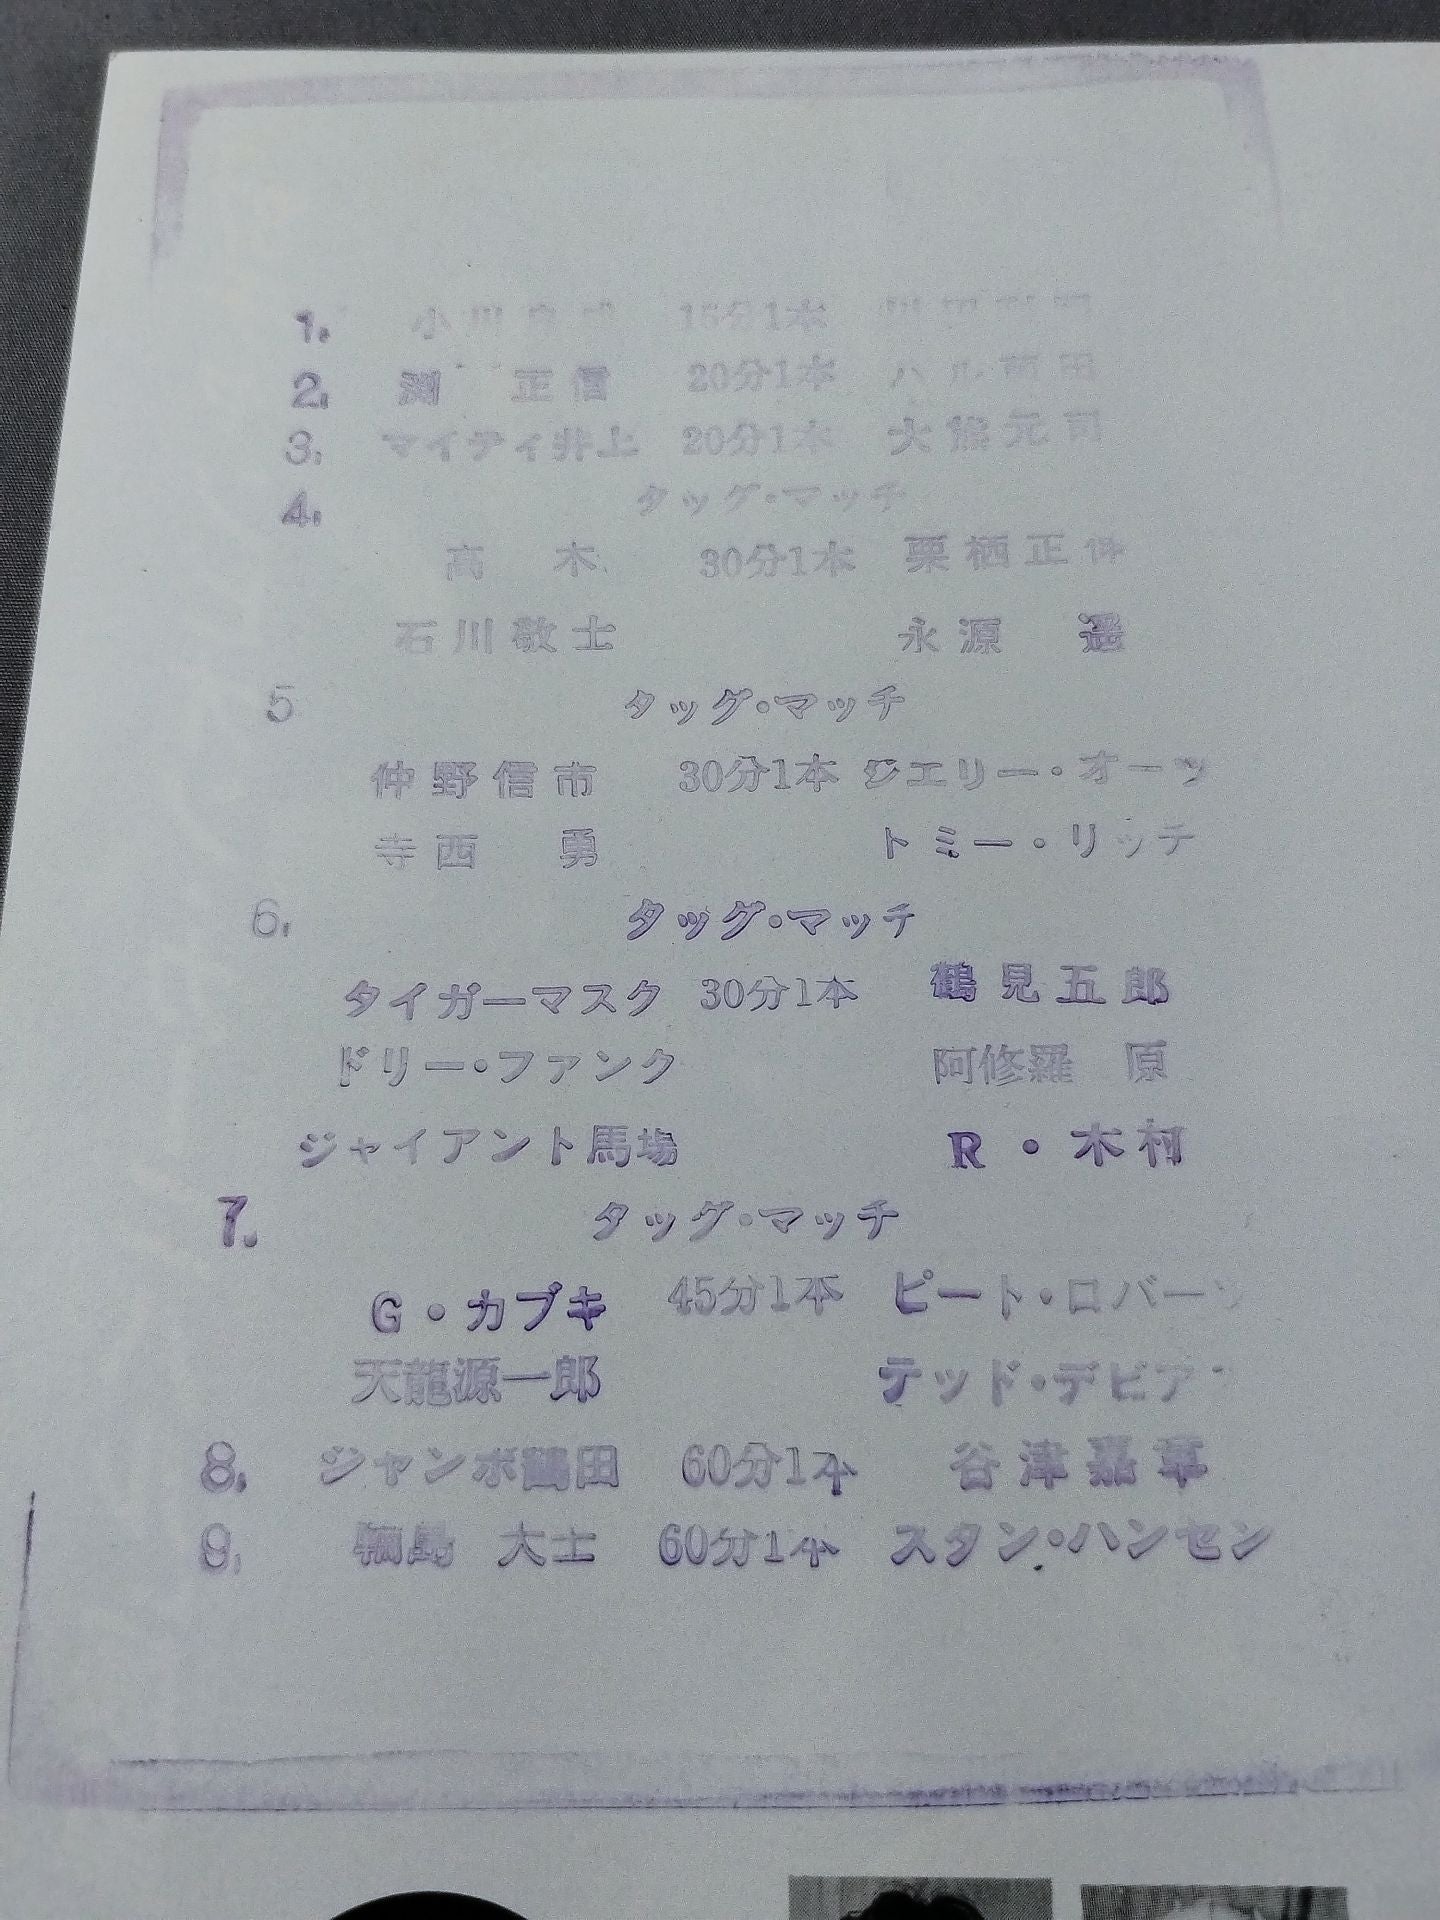 1. 小川良成 15分1本
2. 渕 正信 20分1本 ハル薗田
3. マイティ井上 20分1本 大熊元司
4. タッグ・マッチ
高 木 30分1本 栗栖正伸
石川敬士 永源 遥
5 タッグ・マッチ
仲野信市 30分1本 ジエリー・オーツ
寺西 勇 トミー・リッチ
6. タッグ・マッチ
タイガーマスク 30分1本 鶴見五郎
ドリー・ファンク 阿修羅 原
ジャイアント馬場 R・木村
7. タッグ・マッチ
G・カブキ 45分1本 ピート・ロバーツ
天龍源一郎 テッド・デビアス
8. ジャンボ鶴田 60分1本 谷津嘉章
9. 輪島 大士 60分1本 スタン・ハンセン